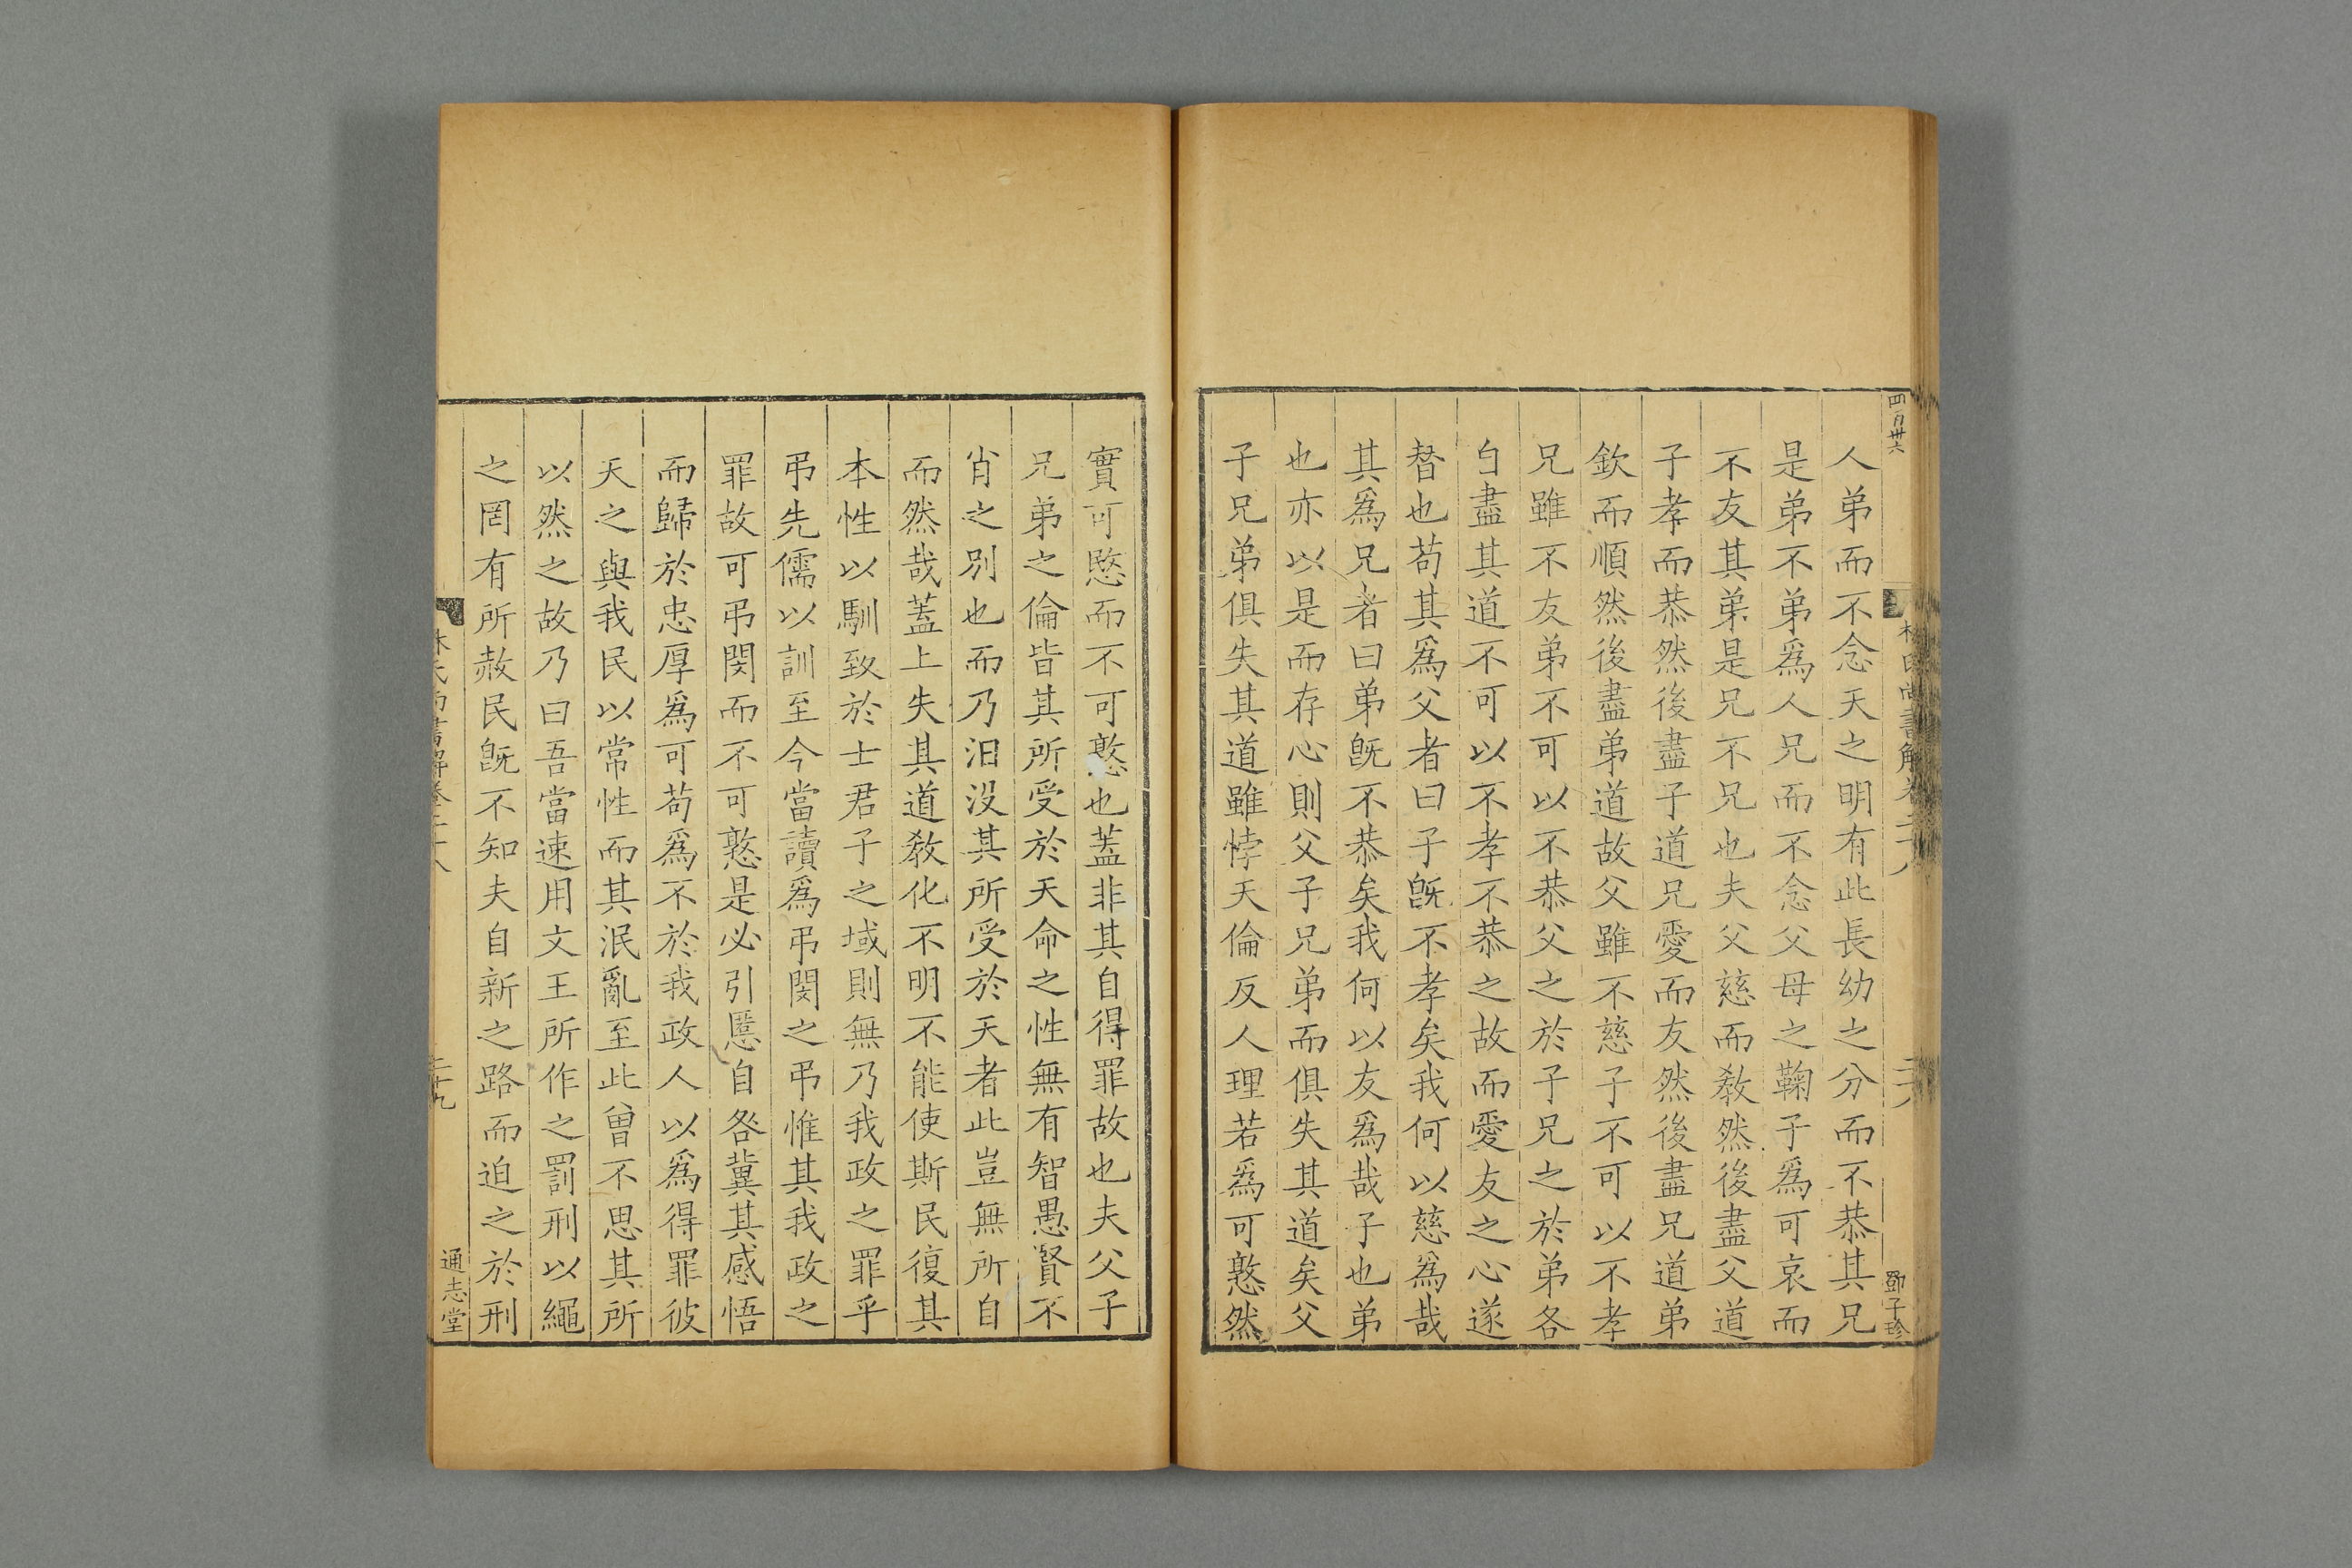 四百卅六
林氏尚書解卷二十八
二十八
鄧子珍
人弟而不念天之明有此長幼之分而不恭其兄
是弟不弟爲人兄而不念父母之鞠子爲可哀而
不友其弟是兄不兄也夫父慈而敎然後盡父道
子孝而恭然後盡子道兄愛而友然後盡兄道弟
欽而順然後盡弟道故父雖不慈子不可以不孝
兄雖不友弟不可以不恭父之於子兄之於弟各
自盡其道不可以不孝不恭之故而愛友之心遂
替也苟其爲父者曰子旣不孝矣我何以慈爲哉
其爲兄者曰弟旣不恭矣我何以友爲哉子也弟
也亦以是而存心則父子兄弟而俱失其道矣父
子兄弟俱失其道雖悖天倫反人理若爲可憝然
實可愍而不可憝也蓋非其自得罪故也夫父子
兄弟之倫皆其所受於天命之性無有智愚賢不
肖之别也而乃汨没其所受於天者此豈無所自
而然哉蓋上失其道敎化不明不能使斯民復其
本性以馴致於士君子之域則無乃我政之罪乎
弔先儒以訓至今當讀爲弔閔之弔惟其我政之
罪故可弔閔而不可憝是必引慝自咎冀其感悟
而歸於忠厚爲可苟爲不於我政人以爲得罪彼
天之與我民以常性而其泯亂至此曾不思其所
以然之故乃曰吾當速用文王所作之罰刑以繩
之罔有所赦民旣不知夫自新之路而迫之於刑
林氏尚書解卷二十八
二十九
通志堂